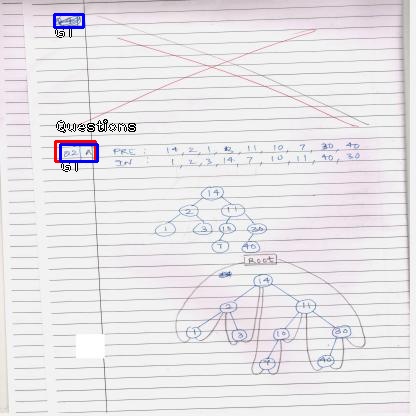 G1
Questions
Q2 A PRE: 14, 2, 1, 3, 11, 10, 7, 30, 40
G1 IN: 1, 2, 3, 14, 7, 10, 11, 40, 30
14
2 11
1 3 10 30
7 40
Root
14
2 11
1 3 10 30
7 40